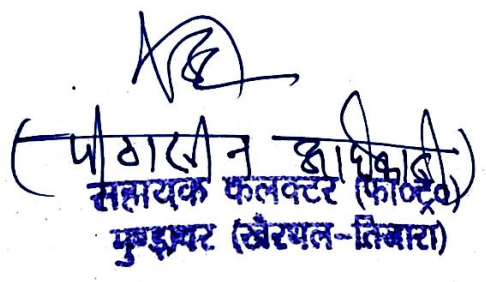 (पीठासीन अधिकारी)
सहायक कलक्टर (फा०ट्रे०)
मुण्डावर (खैरथल-तिजारा)